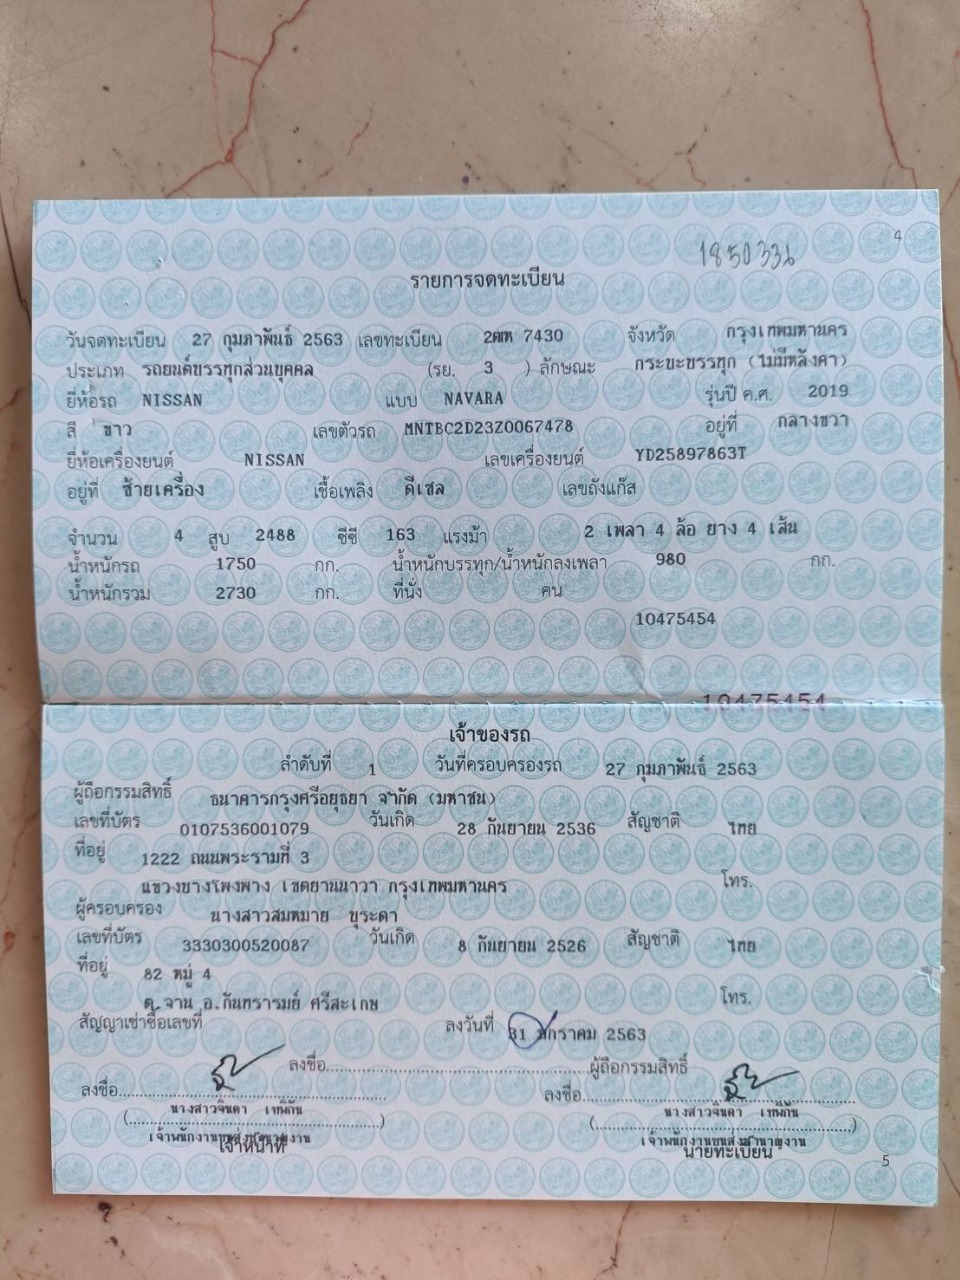 4
1850336
รายการจดทะเบียน
วันจดทะเบียน 27 กุมภาพันธ์ 2563 เลขทะเบียน 2ฒห 7430 จังหวัด กรุงเทพมหานคร
ประเภท รถยนต์บรรทุกส่วนบุคคล (รย. 3 ) ลักษณะ กระบะบรรทุก (ไม่มีหลังคา)
ยี่ห้อรถ NISSAN แบบ NAVARA รุ่นปี ค.ศ. 2019
สี ขาว เลขตัวรถ MNTBC2D23Z0067478 อยู่ที่ กลางขวา
ยี่ห้อเครื่องยนต์ NISSAN เลขเครื่องยนต์ YD25897863T
อยู่ที่ ซ้ายเครื่อง เชื้อเพลิง ดีเซล เลขถังแก๊ส
จำนวน 4 สูบ 2488 ซีซี 163 แรงม้า 2 เพลา 4 ล้อ ยาง 4 เส้น
น้ำหนักรถ 1750 กก. น้ำหนักบรรทุก/น้ำหนักลงเพลา 980 กก.
น้ำหนักรวม 2730 กก. ที่นั่ง คน
10475454
10475454
เจ้าของรถ
ลำดับที่ 1 วันที่ครอบครองรถ 27 กุมภาพันธ์ 2563
ผู้ถือกรรมสิทธิ์ ธนาคารกรุงศรีอยุธยา จำกัด (มหาชน)
เลขที่บัตร 0107536001079 วันเกิด 28 กันยายน 2536 สัญชาติ ไทย
ที่อยู่ 1222 ถนนพระรามที่ 3
แขวงบางโพงพาง เขตยานนาวา กรุงเทพมหานคร โทร.
ผู้ครอบครอง นางสาวสมหมาย บุระดา
เลขที่บัตร 3330300520087 วันเกิด 8 กันยายน 2526 สัญชาติ ไทย
ที่อยู่ 82 หมู่ 4
ต.จาน อ.กันทรารมย์ ศรีสะเกษ โทร.
สัญญาเช่าซื้อเลขที่ ลงวันที่ 31 มกราคม 2563
ลงชื่อ ผู้ถือกรรมสิทธิ์
ลงชื่อ ลงชื่อ
นางสาวจินดา เทพีกัน นางสาวจินดา เทพีกัน
( ) ( )
เจ้าพนักงานขนส่งชำนาญงาน เจ้าพนักงานขนส่งชำนาญงาน
เจ้าหน้าที่ นายทะเบียน
5